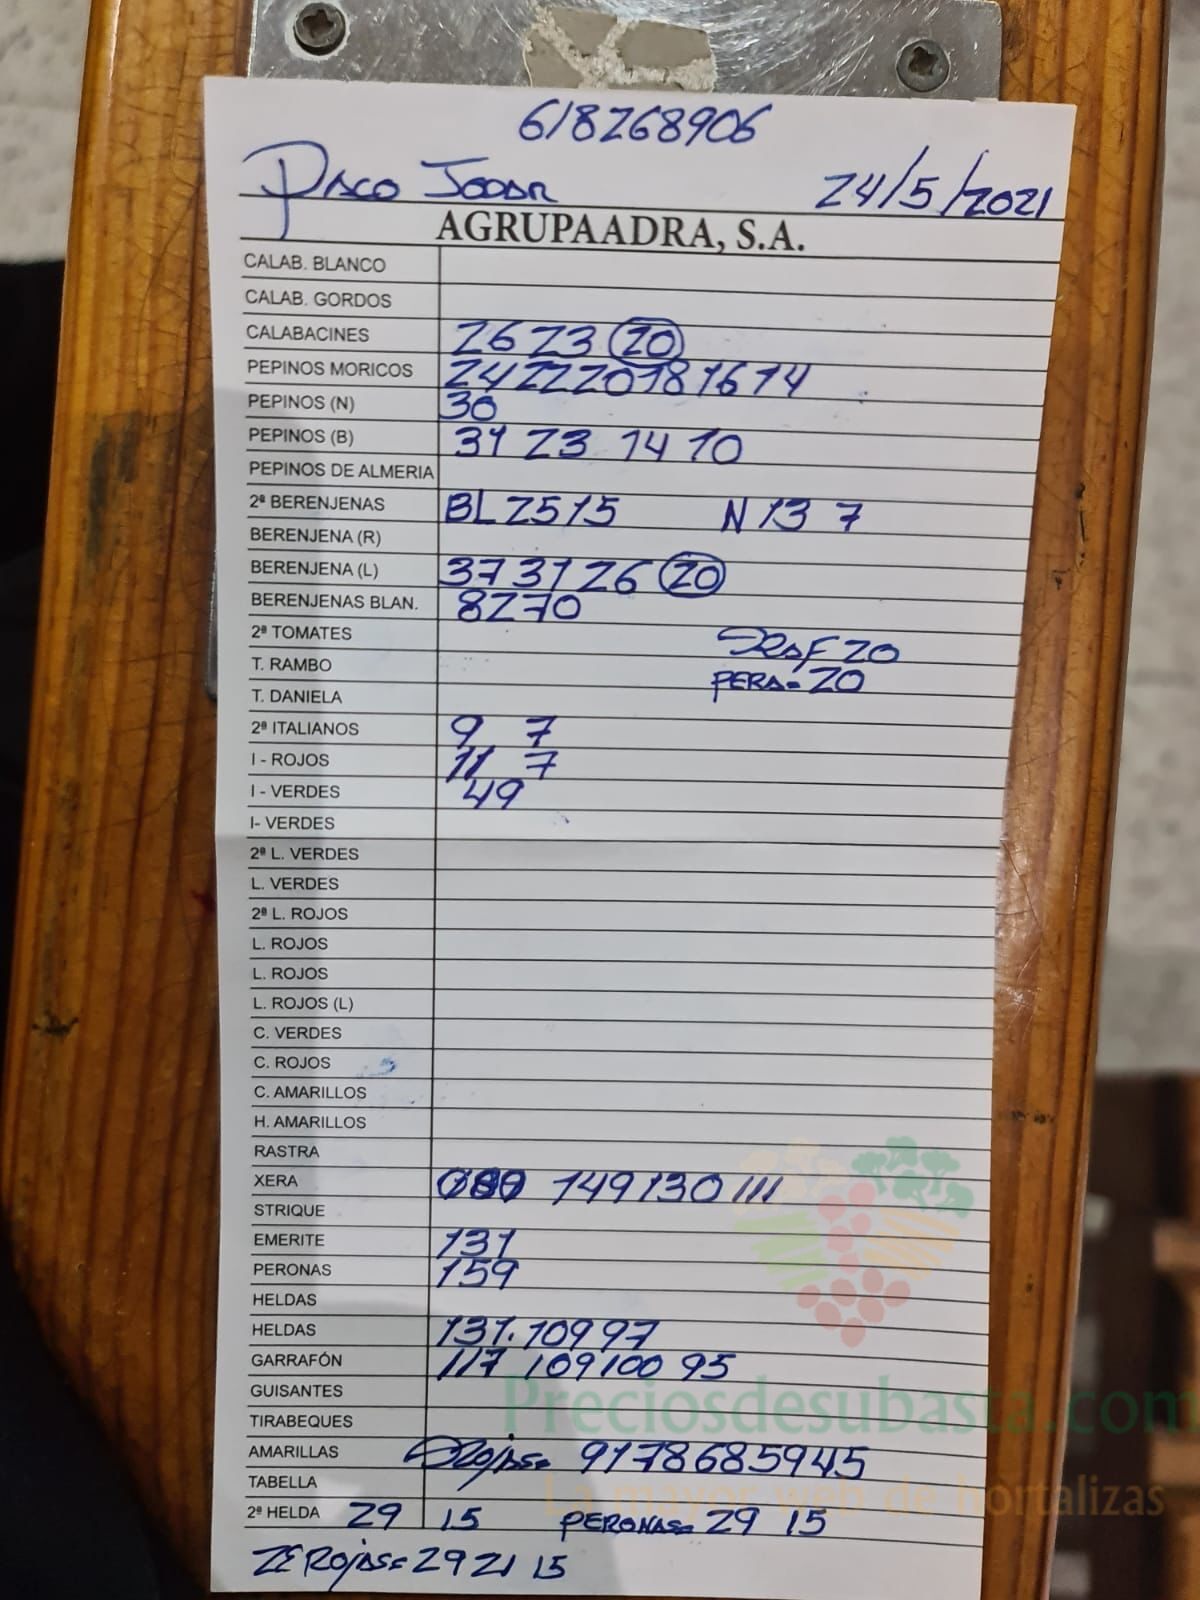 618268906
Paco Jodar 24/5/2021
AGRUPAADRA, S.A.
CALAB. BLANCO
CALAB. GORDOS
CALABACINES 26 23 20
PEPINOS MORICOS 24 22 20 18 16 14
PEPINOS (N) 30
PEPINOS (B) 31 23 14 10
PEPINOS DE ALMERIA
2ª BERENJENAS BL 25 15 N 13 7
BERENJENA (R)
BERENJENA (L) 37 31 26 20
BERENJENAS BLAN. 82 70
2ª TOMATES RAF 20
T. RAMBO PERA= 20
T. DANIELA
2ª ITALIANOS 9 7
I - ROJOS 11 7
I - VERDES 49
I- VERDES
2ª L. VERDES
L. VERDES
2ª L. ROJOS
L. ROJOS
L. ROJOS
L. ROJOS (L)
C. VERDES
C. ROJOS
C. AMARILLOS
H. AMARILLOS
RASTRA
XERA 149 130 111
STRIQUE
EMERITE 131
PERONAS 159
HELDAS
HELDAS 131. 109 97
GARRAFÓN 117 109 100 95
GUISANTES
Preciosdesubasta.com
TIRABEQUES
AMARILLAS Rojas= 91 78 68 59 45
TABELLA
La mayor web de hortalizas
2ª HELDA 29 15 PERONAS= 29 15
2ª Rojas= 29 21 15